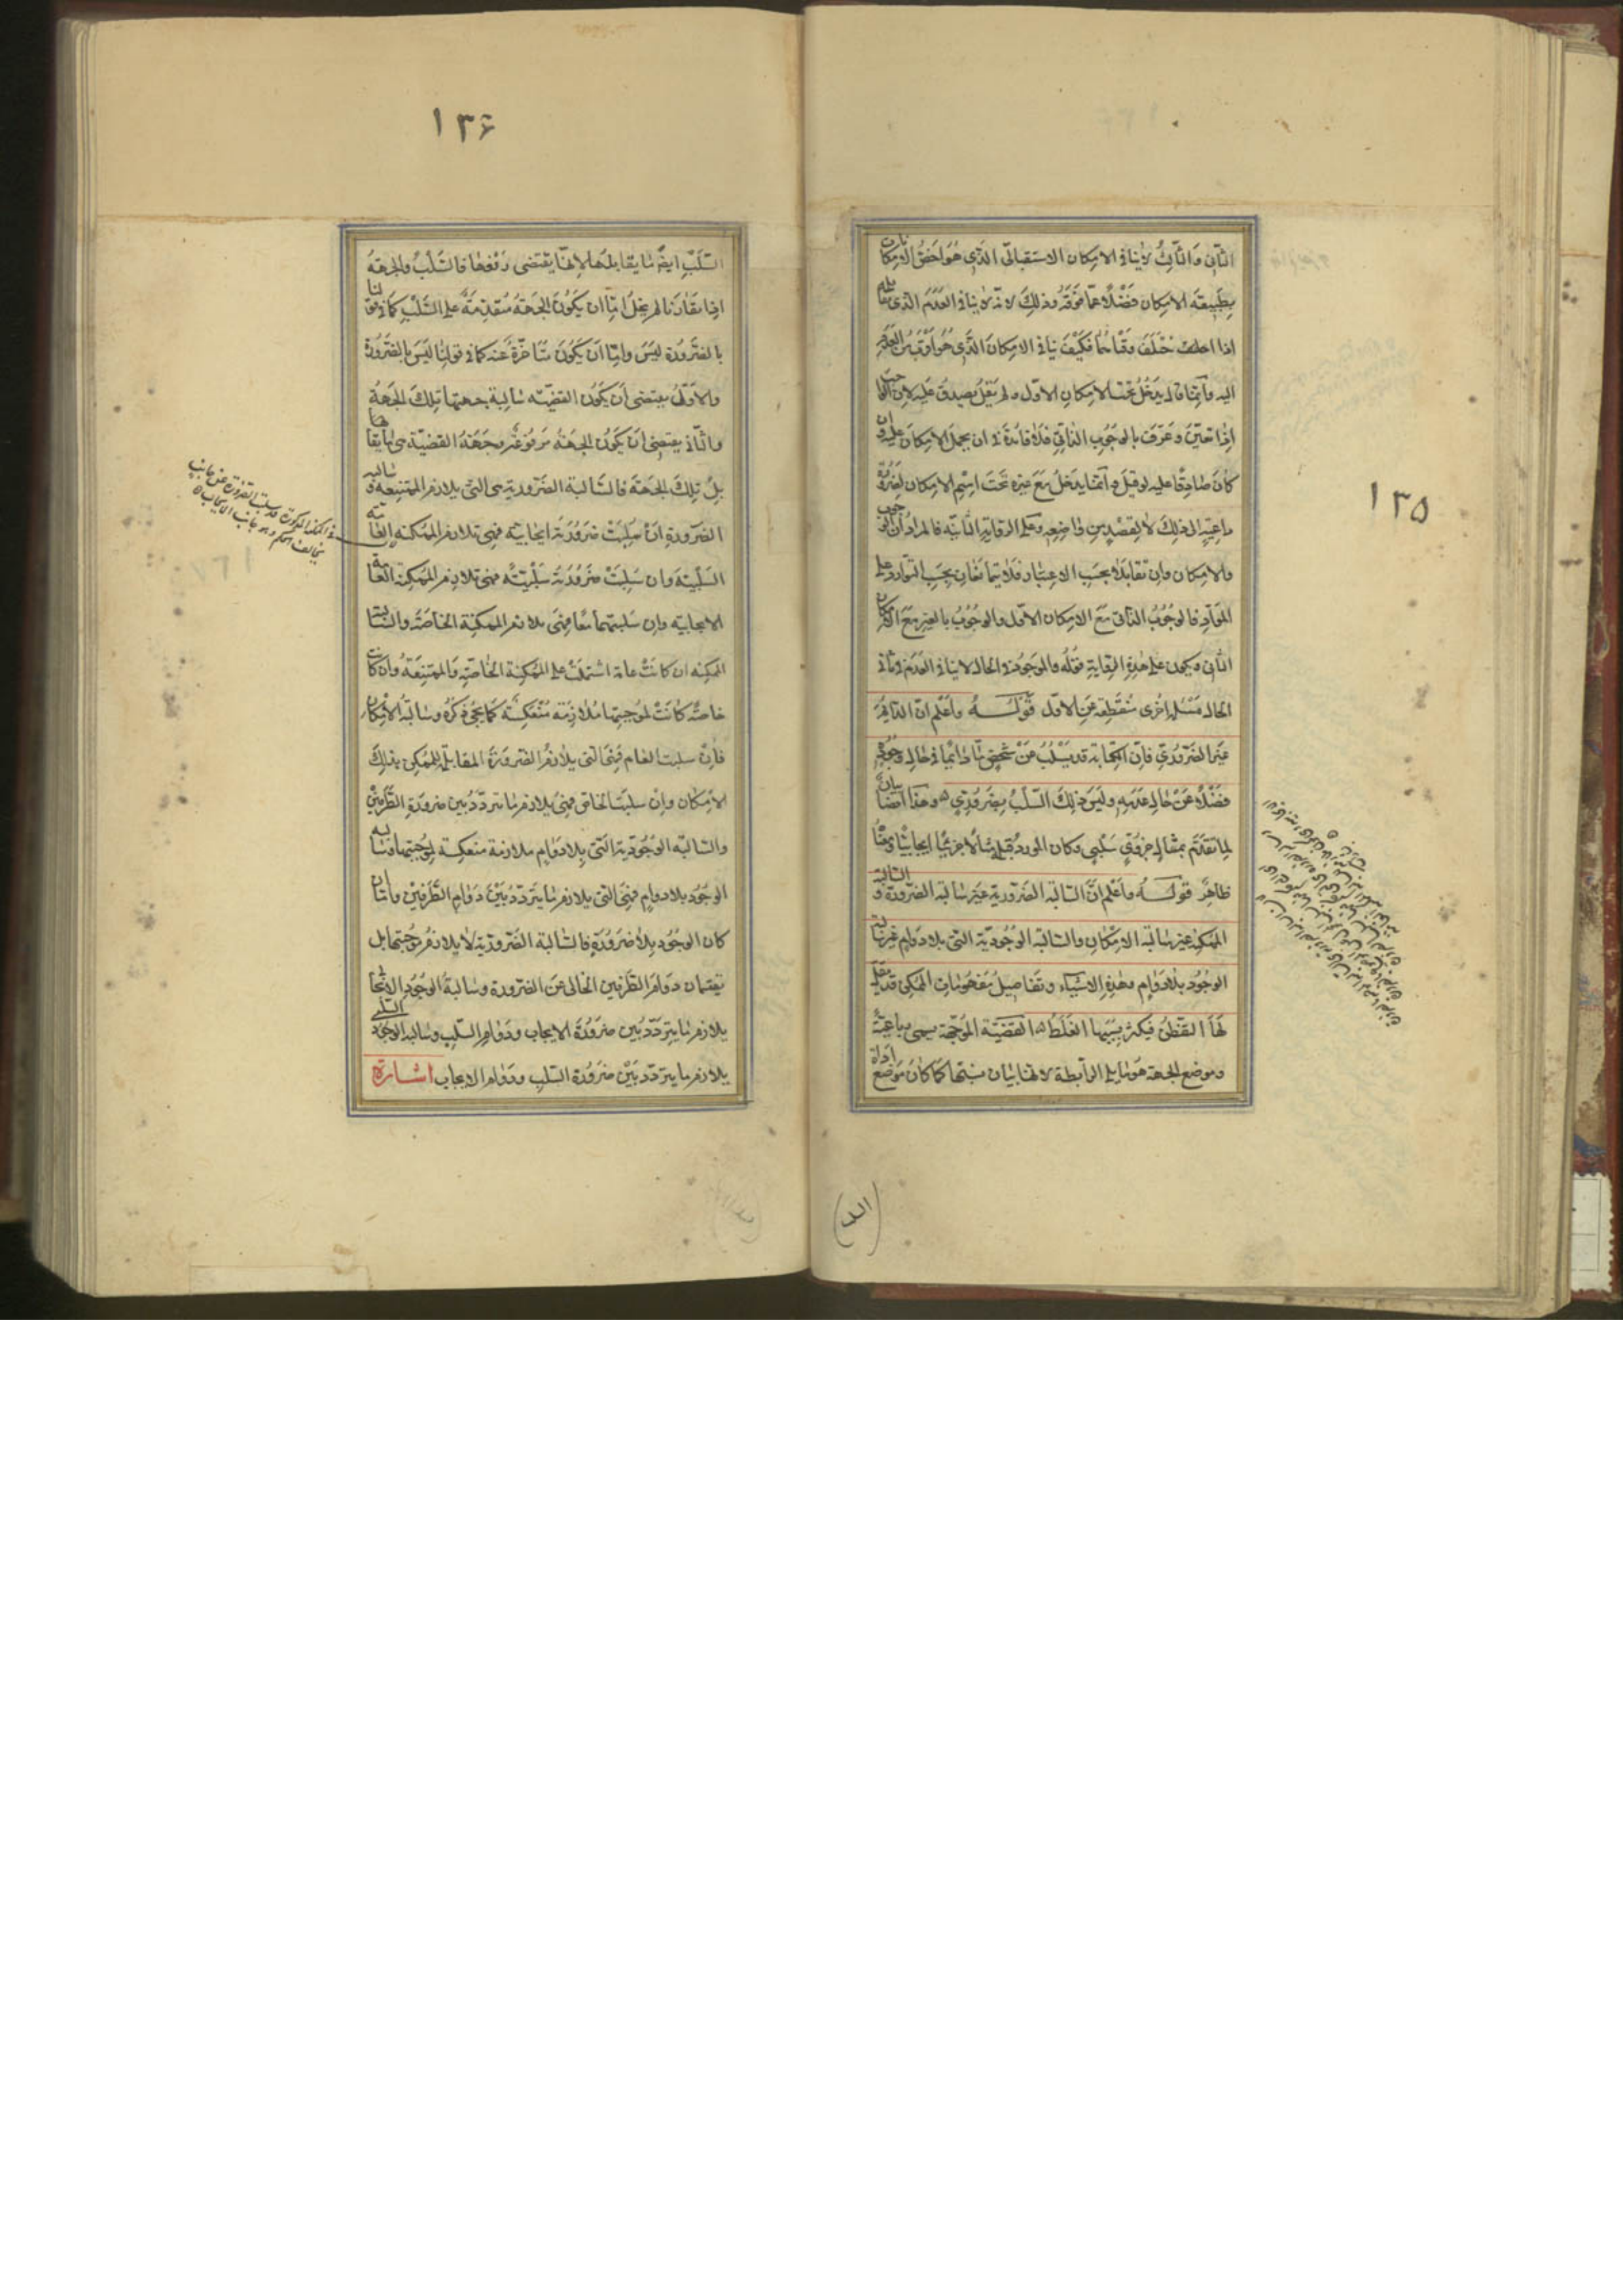 ۱۳۵
الثانى والثالث لاينافى الامكان الاستقبالى الذى هو اخص الامكانات
بطبيعة الامكان فضلا عما فوقه وذلك لانه لاينافى العدم الذى
اذا فكيف ينافى الامكان الذى هو اوقب من العدم
اليه وانما قال يدخل تحت الامكان الاول ولم يقل يصدق عليه لان الواجب
اذا تعين وعرف بالوجوب الذاتى فلا فائدة فى ان يحمل الامكان عليه وان
كان صادقا عليه لو قيل وانما يدخل مع غيره تحت اسم الامكان لضرورة
داعية الى ذلك لا لقصد من واضعه وعلى الرواية الثانية فالمراد ان الوجوب
والامكان وان تقابلا بحسب الاعتبار فلا يتمانعان بحسب التوارد على
المواد فالوجوب الذاتى مع الامكان الاول والوجوب بالغير مع الامكان
الثانى ويكون على هذه الرواية قوله والموجود فى الحال لاينافى العدم فى ثانى
الحال مسئلة اخرى منقطعة عن الاول قوله واعلم ان الدائم
غير الضرورى فان الكتابة قد يسلب عن شخص ما دائما فى حال وجوده
فضلا عن حال عدمه وليس ذلك السلب بضرورى وهذا ايضا بيان
لما تقدم بمثال جزوى سلبى وكان المورد قبله مثالا جزئيا ايجابيا وهذا
ظاهر قوله واعلم ان السالبة الضرورية غير سالبة الضرورة والسالبة
الممكنة غير سالبة الامكان والسالبة الوجودية التى بلا دوام غير سالبة
الوجود بلا دوام وهذه الاشياء وتفاصيل مفهومات الممكن قد يقل
لها التفطن فيكثر بسببها الغلط القضية الموجهة يسمى رباعية
وموضع الجهة هو ما يلى الرابطة لانها بيان نسبتها كما كان موضع اداة
۱۳۶
السلب ايضا ما يقابلها لانها يقتضى رفعها فالسلب والجهة
اذا تقارنا لم يخل اما ان يكون الجهة متقدمة على السلب كما فى قولنا
بالضرورة ليس واما ان يكون متاخرة عنه كما فى قولنا ليس بالضرورة
والاول يقتضى ان يكون القضية سالبة جهتها تلك الجهة
والثانى يقتضى ان يكون الجهة مرفوعة وجهة القضية هى ما يقابلها
بل تلك الجهة فالسالبة الضرورية هى التى يلازم الممتنعة وسالبة
الضرورة ان سلبت ضرورة ايجابية فهى تلازم الممكنة العامة
السلبية وان سلبت ضرورة سلبية فهى تلازم الممكنة العامة
الايجابية وان سلبتهما معا فهى يلازم الممكنة الخاصة والسالبة
الممكنة ان كانت عامة اشتملت على الممكنة الخاصة والممتنعة وان كانت
خاصة كانت لموجبتها ملازمة منعكسة كما يجئ ذكره وسالبة الامكان
فان سلبت العام فهى التى يلازم الضرورة المقابلة للممكن بذلك
الامكان وان سلبت الخاص فهى يلازم ما يتردد بين ضرورة الطرفين
والسالبة الوجودية التى بلا دوام ملازمة منعكسة لموجبتها وسالبة
الوجود بلا دوام فهى التى يلازم ما يتردد بين دوام الطرفين واما ان
كان الوجود بلا ضرورة فالسالبة الضرورية لا يلازم موجبتها بل
تقتسمان دوام الطرفين الخالى عن الضرورة وسالبة الوجود الايجابى
يلازم ما يتردد بين ضرورة الايجاب ودوام السلب وسالبة الوجود السلبى
يلازم ما يتردد بين ضرورة السلب ودوام الايجاب اشارة